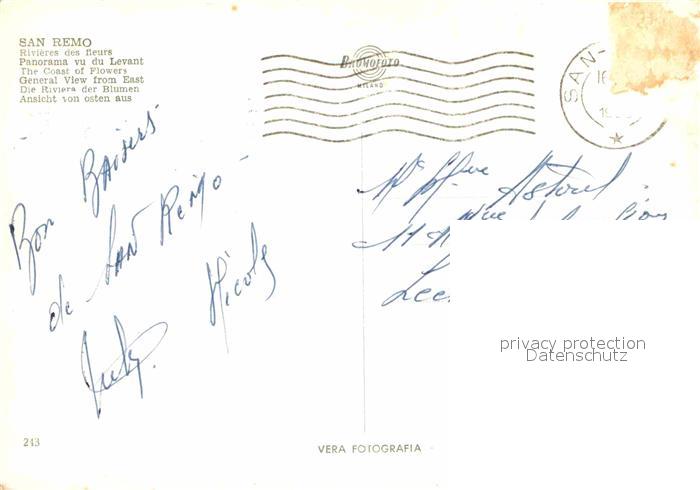 SAN REMO
Rivières des fleurs
Panorama vu du Levant
The Coast of Flowers
General View from East
Die Riviera der Blumen
Ansicht von osten aus
BROMOFOTO
MILANO
SAN-
16
19
Bon Baisers
de San Remo
Nicole
Mr Mme Astruc
privacy protection
Datenschutz
243
VERA FOTOGRAFIA